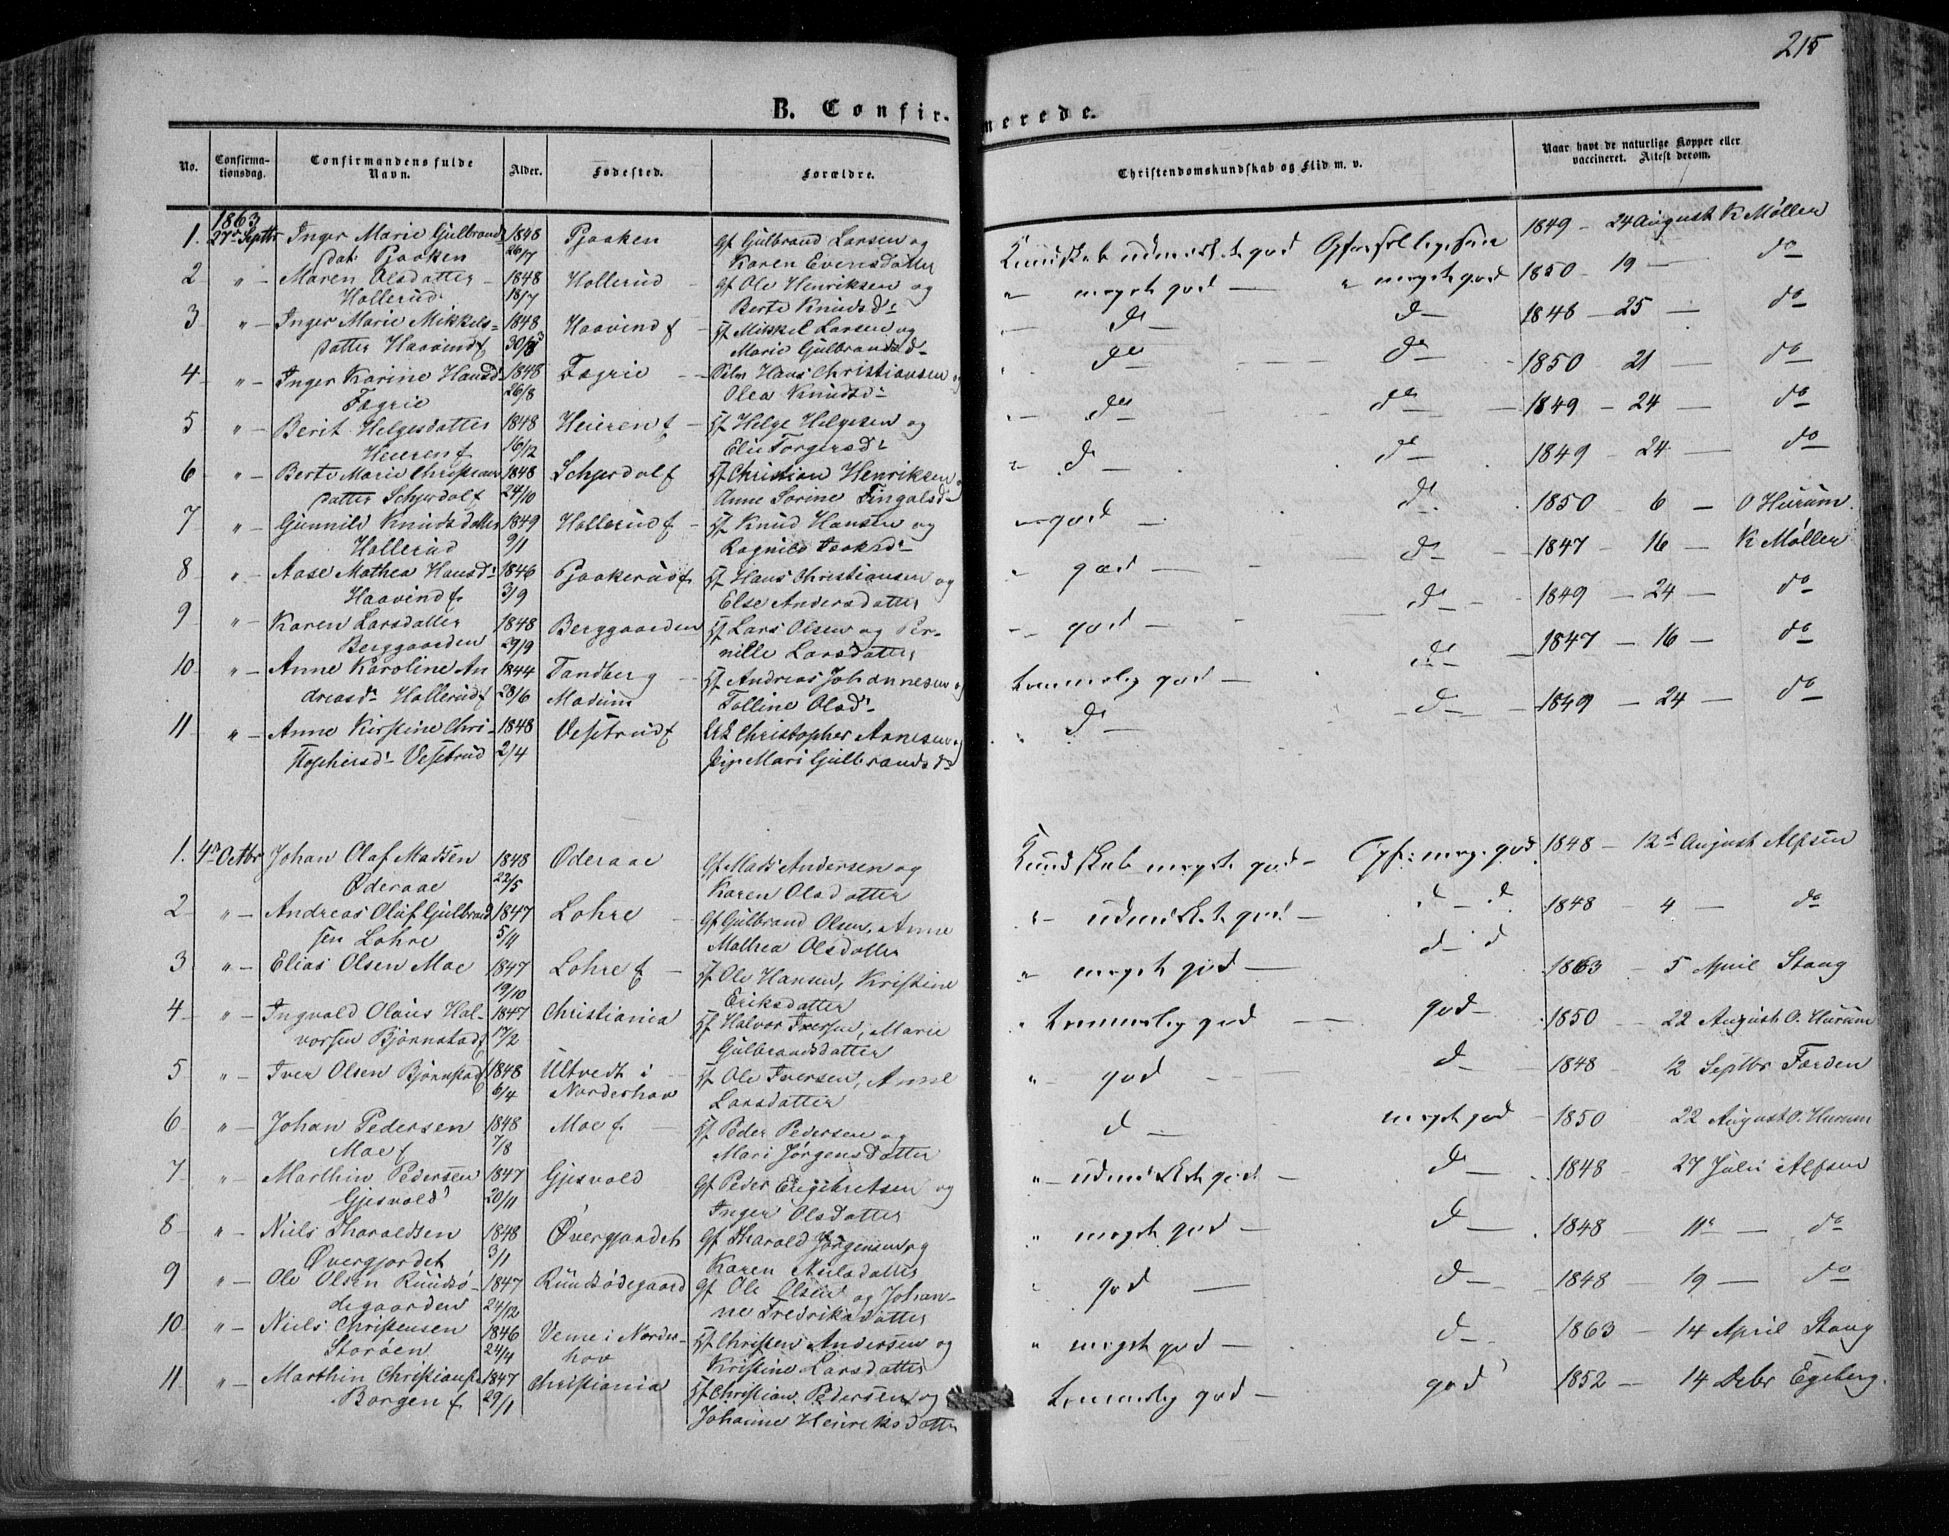 215
B. Confirmerede.
No. Confirmationsdag. Confirmandens fulde Navn. Alder. Fødested. Forældre. Christendomskundskab og Flid m. v. Naar havt de naturlige Kopper eller vaccineret. Attest derom.
1863
1. 27de Septbr Inger Marie Gulbrands 1848 Pjaaken Gf Gulbrand Larsen og Kundskab udmerket god Opførsel 1849 - 24 August K Møller
dat. Pjaaken 26/7 Karen Evensdatter
2 " - Maren Olsdatter 1848 Hollerud Gf Ole Henriksen og " meget god " meget god 1850 - 19 - do
Hollerud 18/7 Berte Knudsd:
3 " - Inger Marie Mikkels= 1848 Haavind f Hf Mikkel Larsen og do do 1846 - 25 - do
datter Haavind f 30/8 Marie Gulbrandsd-
4 " - Inger Karine Hansd: 1848 Fagrie Hans Christiansen og do do 1850 21 - do
Fagrie 26/8 Olea Knudsd:
5 " - Berit Helgesdatter 1848 Heieren f Hf Helge Helgesen og do do 1849 - 24 - do
Heieren f 16/12 Eli Torgersd:
6 " - Berte Marie Christians 1848 Schjerdal f Hf Christian Henriksen do do 1849 - 24 do
datter Schjerdal f 24/10 Anne Sorine Fingalsd-
7 " - Gunnild Knudsdatter 1849 Hollerud f - Hf Knud Hansen og god - do 1850 - 6 - O Hurum.
Hollerud 9/1 Ragnild Isaksd:
8 " - Aase Mathea Hansd: 1846 Pjaakerud f Hf Hans Christiansen og god - do 1847 - 16 - K Møller
Haavind f 3/9 Else Andersdatter
9 " - Karen Larsdatter 1848 Berggaarden Hf Lars Olsen og Per- god - do 1849 - 24 - do
Berggaarden 29/9 nille Larsdatter
10 " - Anne Karoline An 1844 Tandberg Hf Andreas Johannesen og temmelig god - do 1847 - 16 - do
dreasd: Hollerud f 28/6 Modum Olsd:
11 " - Anne Kirstine Chri- 1848 Vestrud f Christopher Arnesen og do - do 1849 - 24 - do
stophersd: Vestrud 2/4 Mari Gulbrandsd:
1. 4de Octbr Johan Olaf Madsen 1848 Øderaae Gf Mads Andersen og Kundskab meget god - Opf: meg. god. 1848 - 12te August Alfsen
Øderaae 22/5 Karen Olsdatter
2 " - Andreas Oluf Gulbrand 1847 Lohre Gf Gulbrand Olsen, Anne " udmerket god - d - d 1848 - 4 - do
sen Lohre 5/4 Mathea Olsdatter
3 " - Elias Olsen Moe 1847 Lohre f - Hf Ole Hansen, Kristine " meget god - d - d 1863 - 5 April Stang
19/10 Eriksdatter
4 " - Ingvald Olaus Hal- 1847 Christiania Hf Halvor Iversen, Marie " temmelig god god - 1850 - 22 August O. Hurum
vorsen Bjørnstad f 17/2 Gulbrandsdatter
5 " - Iver Olsen Bjørnstad 1848 Ultvedt i Hf Ole Iversen, Anne " god d - 1848 12 Septbr Førden
6/4 Norderhov Larsdatter
6 " - Johan Pedersen 1848 Moe f. - Hf Peder Pedersen og d - meget god 1850 22 August O. Hurum
Moe f 7/8 Mari Jørgensdatter
7 " - Marthin Pedersen 1847 Gjesvold Gf Peder Engebretsen og " udmerket god - d - 1848 - 27 Juli Alfsen
Gjesvold 20/11 Inger Olsdatter
8 " - Niels Tharaldsen 1848 Øvergjordet Gf Tharald Jørgensen og " meget god - d - 1848 - 11 - do
Øvergjordet 3/1 Karen Nielsdatter
9 " - Ole Olsen Ruudsø- 1847 Ruudsødegaard Gf Ole Olsen og Johan- god d - 1848 - 19 - do
degaarden 24/12 ne Fredriksdatter
10 " - Niels Christensen 1846 Veme i Norder- Hf Christen Andersen og " meget god - d - 1863 - 14 April Stang
Storøen 24/4 hov Kristine Larsdatter
11 " - Marthin Christians 1847 Christiania Hf Christian Pedersen og temmelig god - god 1852 - 14 Debr Egeberg.
Borgen f. 29/1 Johanne Henriksdatter